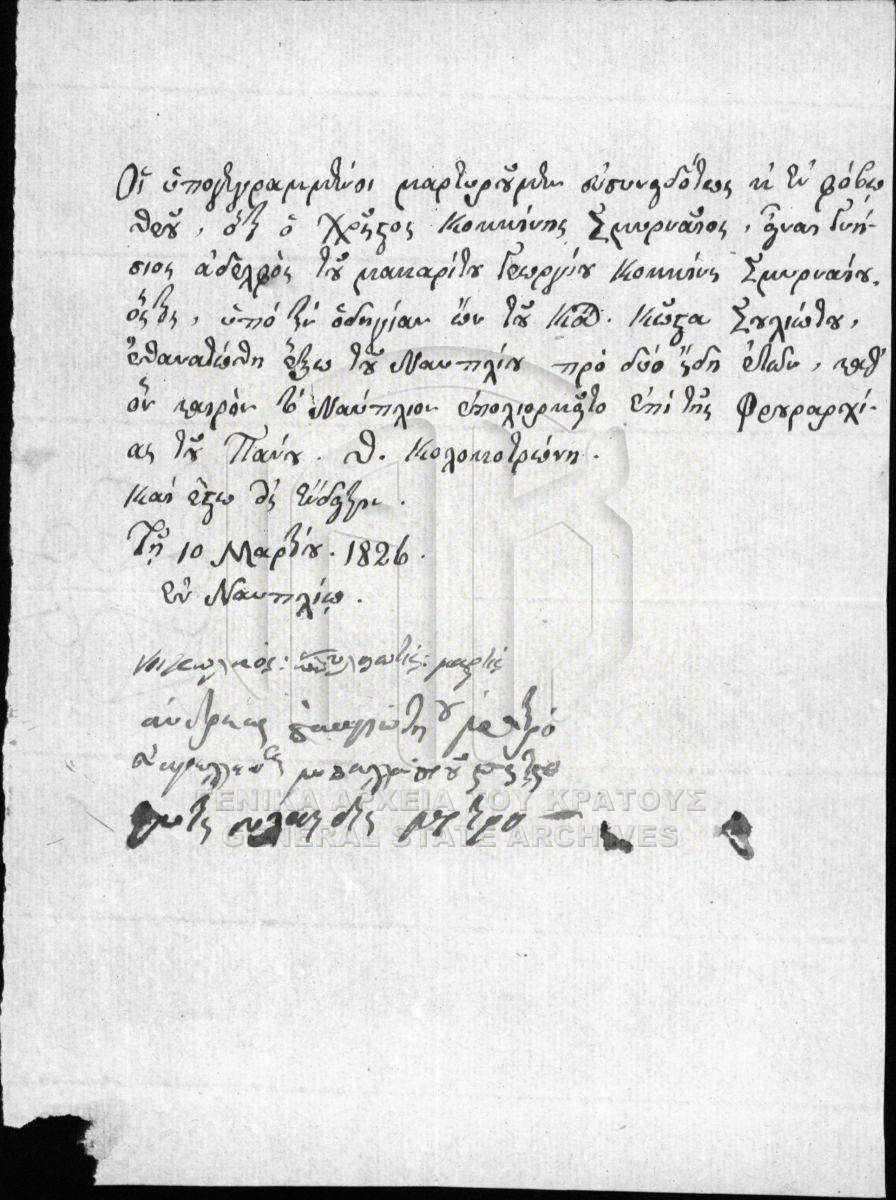 Οἱ ὑπογεγραμμένοι μαρτυροῦμεν εὐσυνειδότως κ ἐν φόβῳ
Θεοῦ, ὅτι ὁ Χρῆστος Κοκκίνης Σμυρναῖος, εἶναι γνή-
σιος ἀδελφὸς τοῦ μακαρίτου Γεωργίου Κοκκίνη Σμυρναίου,
ὅστις, ὑπὸ τὴν ὁδηγίαν ὢν τοῦ Καπ. Κώστα Σουλιώτου,
ἐθανατώθη ἔξω τοῦ Ναυπλίου πρὸ δύο ἤδη ἐτῶν, καθ'
ὃν καιρὸν τὸ Ναύπλιον ἐπολιορκεῖτο ἐπὶ τῆς Φρουραρχί-
ας τοῦ Πάνου. Θ. Κολοκοτρώνη.
Καὶ ἔστω εἰς ἔνδειξιν.
Τῇ 10 Μαρτίου. 1826.
ἐν Ναυπλίῳ.
μαρτις
ανδρεας παναγιωτη μαρτιρο
μαρτιρο
ΓΕΝΙΚΑ ΑΡΧΕΙΑ ΤΟΥ ΚΡΑΤΟΥΣ
GENERAL STATE ARCHIVES